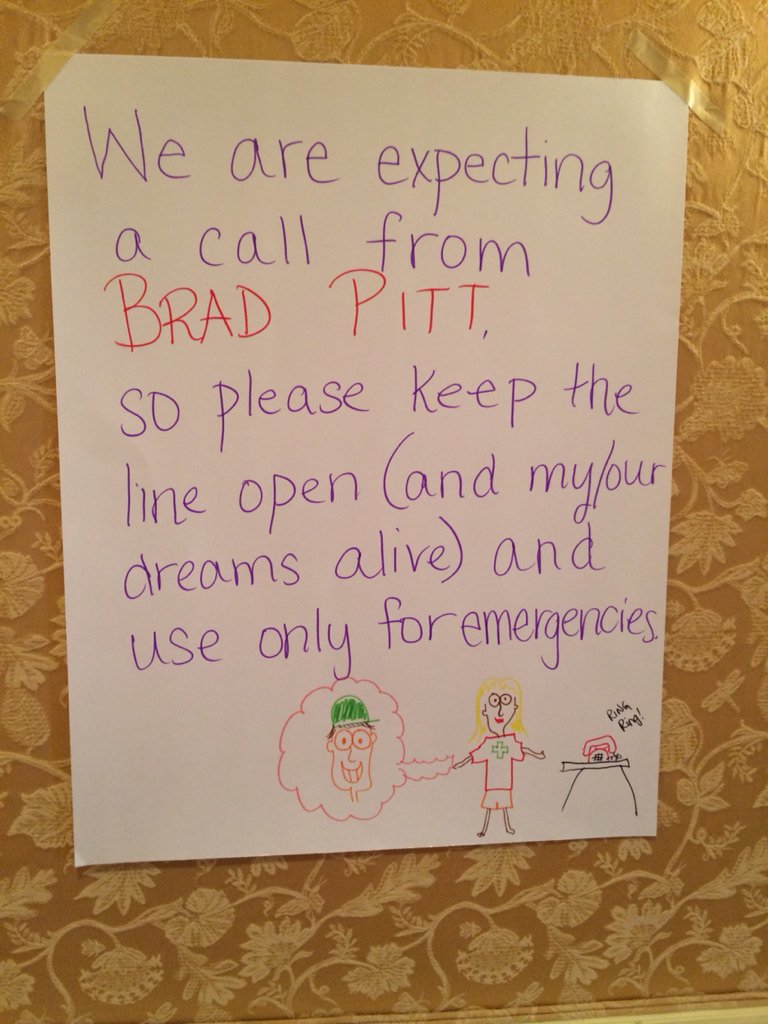 We are expecting
a call from
BRAD PITT,
so please keep the
line open (and my/our
dreams alive) and
use only for emergencies.
RING
Ring!